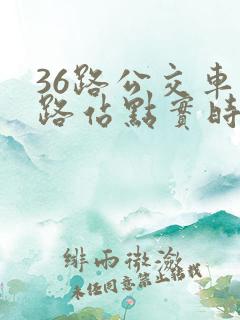 36路公交車
路佔點實時
緋雨微激
未经同意禁止转载